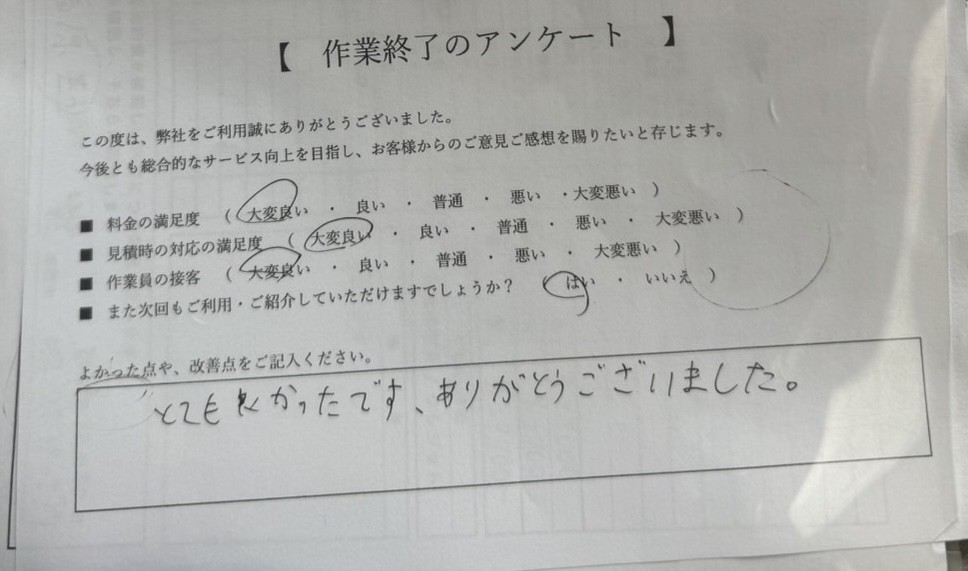 【 作業終了のアンケート 】
この度は、弊社をご利用誠にありがとうございました。
今後とも総合的なサービス向上を目指し、お客様からのご意見ご感想を賜りたいと存じます。
■ 料金の満足度 （ 大変良い ・ 良い ・ 普通 ・ 悪い ・大変悪い ）
■ 見積時の対応の満足度 （ 大変良い ・ 良い ・ 普通 ・ 悪い ・ 大変悪い ）
■ 作業員の接客 （ 大変良い ・ 良い ・ 普通 ・ 悪い ・ 大変悪い ）
■ また次回もご利用・ご紹介していただけますでしょうか？ （ はい ・ いいえ ）
よかった点や、改善点をご記入ください。
とても良かったです、ありがとうございました。